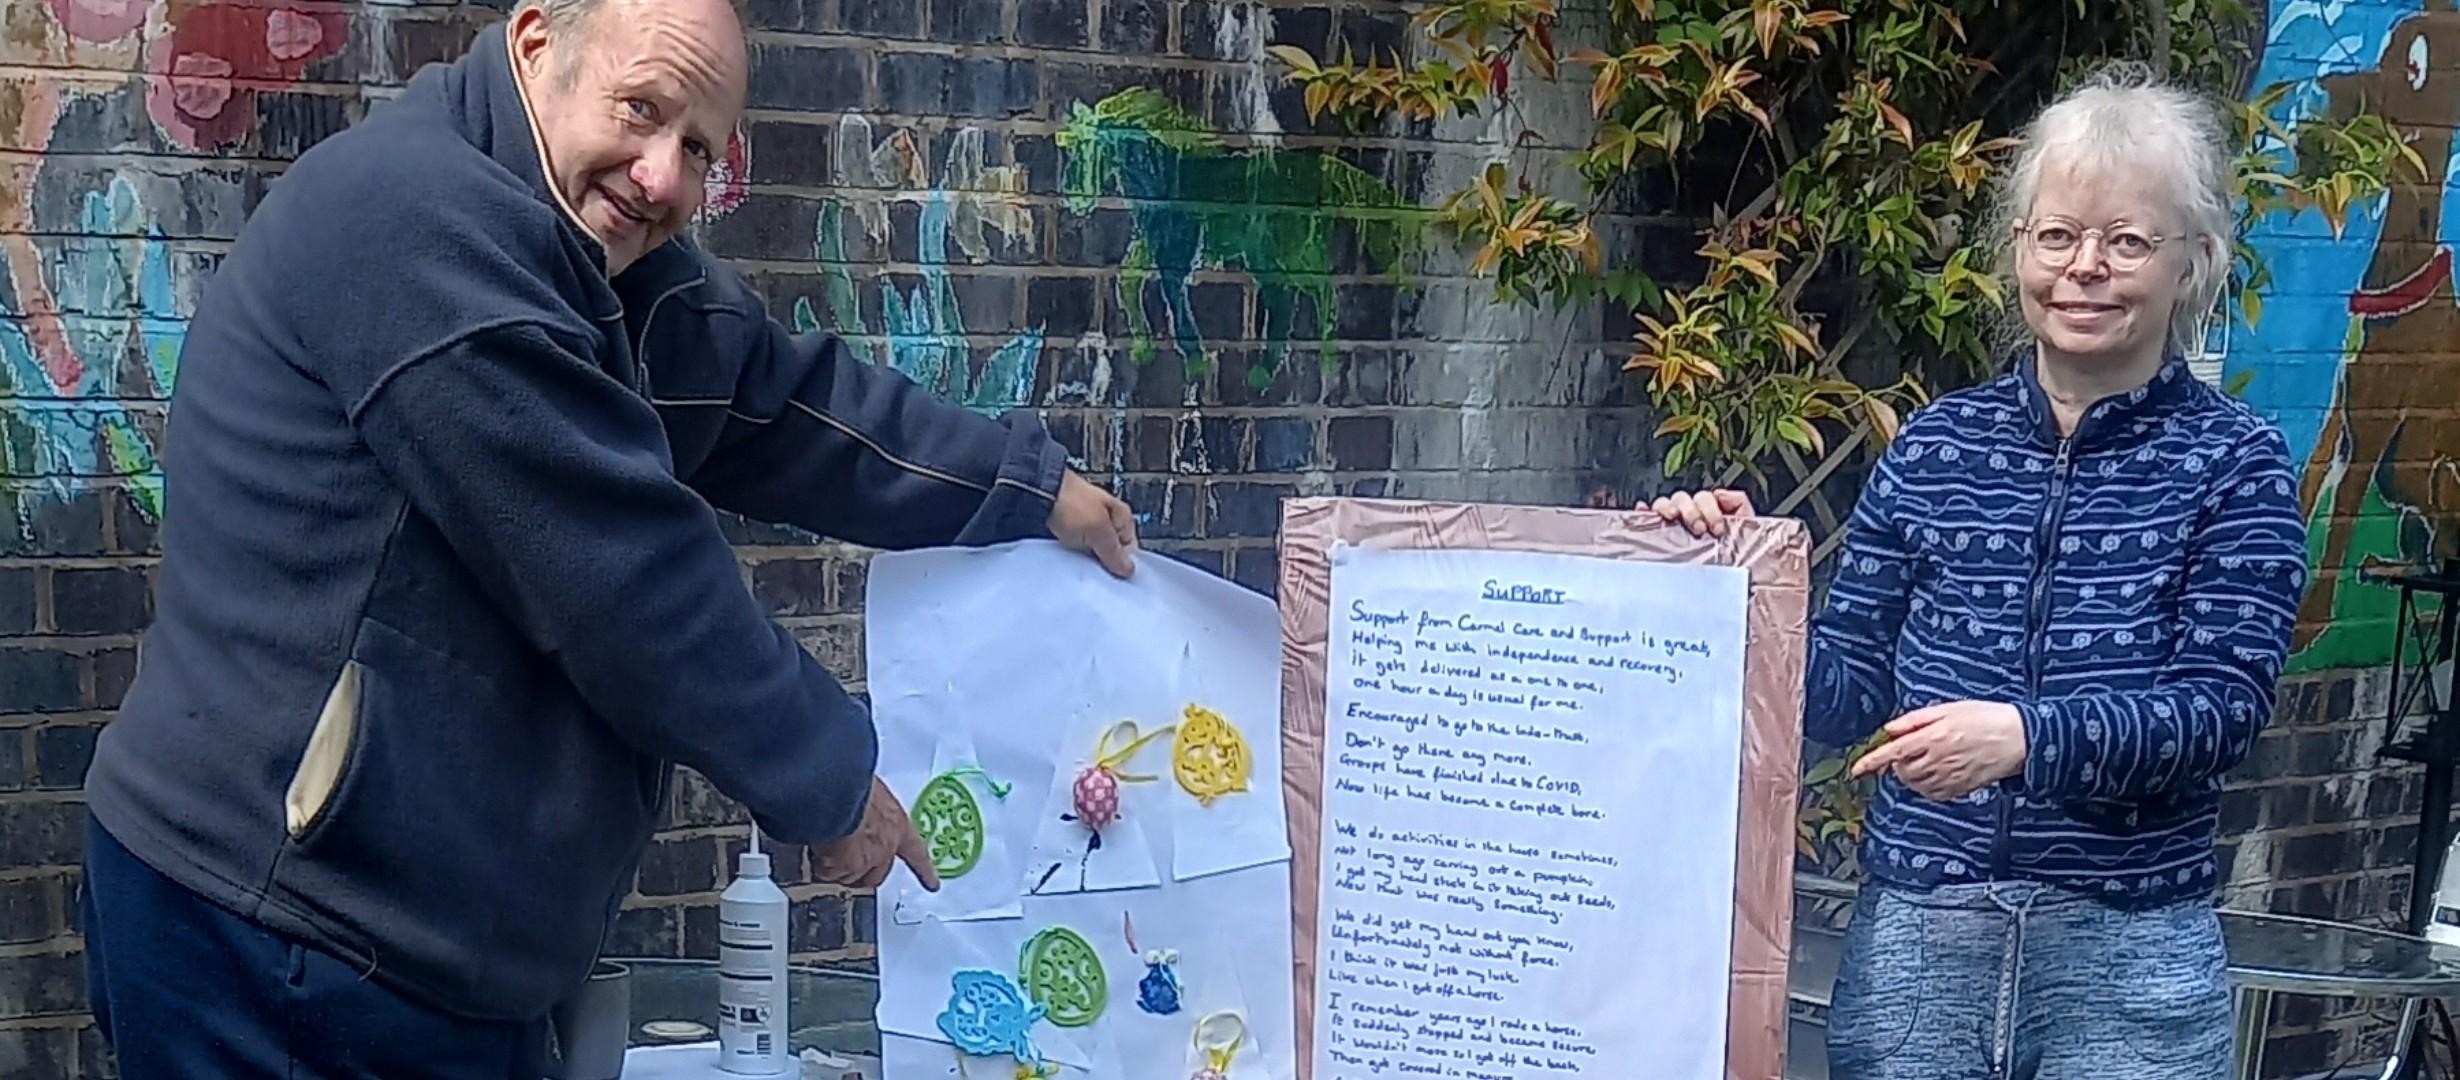 SUPPORT
Support from Carmel Care and Support is great,
Helping me with independence and recovery,
it gets delivered as a one to one,
one hour a day is usual for me.
Encouraged to go to the
Don't go there any more.
Groups have finished due to COVID,
Now life has become a complete bore.
We do activities in the house sometimes,
Not long ago carving out a pumpkin,
I got my hand stuck in it taking out seeds,
Now that was really something.
We did get my hand out you know,
Unfortunately not without force.
I think it was just my luck,
Like when I got off a horse.
I remember years ago I rode a horse,
It suddenly stopped and became secure
It wouldn't move so I got off the back,
Then got covered in manure